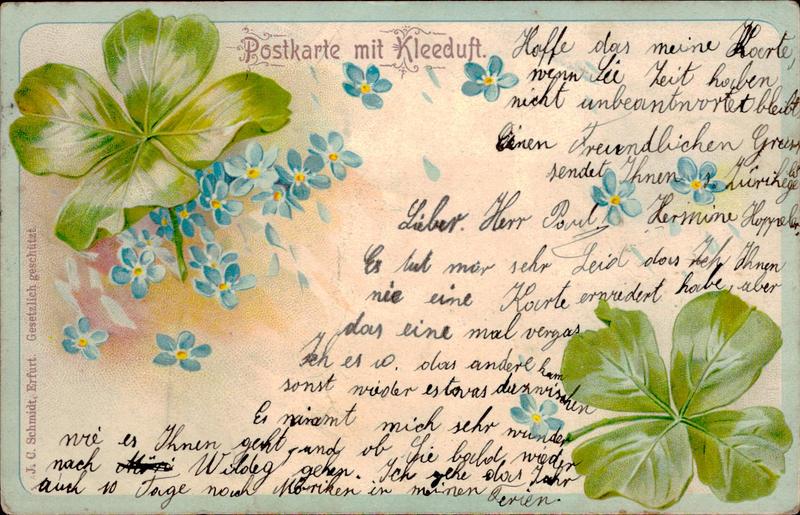 Postkarte mit Kleeduft.
Hoffe das meine Karte,
wenn Sie Zeit haben
nicht unbeantwortet bleibt
Einen Freundlichen Gruss
sendet Ihnen
Lieber. Herr Paul. Hermine
Es tut mir sehr Leid das Ich Ihnen
nie eine Karte erwiedert habe, aber
das eine mal vergas
Ich es u. das andere kam
sonst wieder etwas dazwischen
Es nimmt mich sehr wunder
wie es Ihnen geht und ob Sie bald wieder
nach Wildeg gehen. Ich gehe das Jahr
auch 10 Tage nach Möriken in meinen Ferien.
J. C. Schmidt, Erfurt. Gesetzlich geschützt.